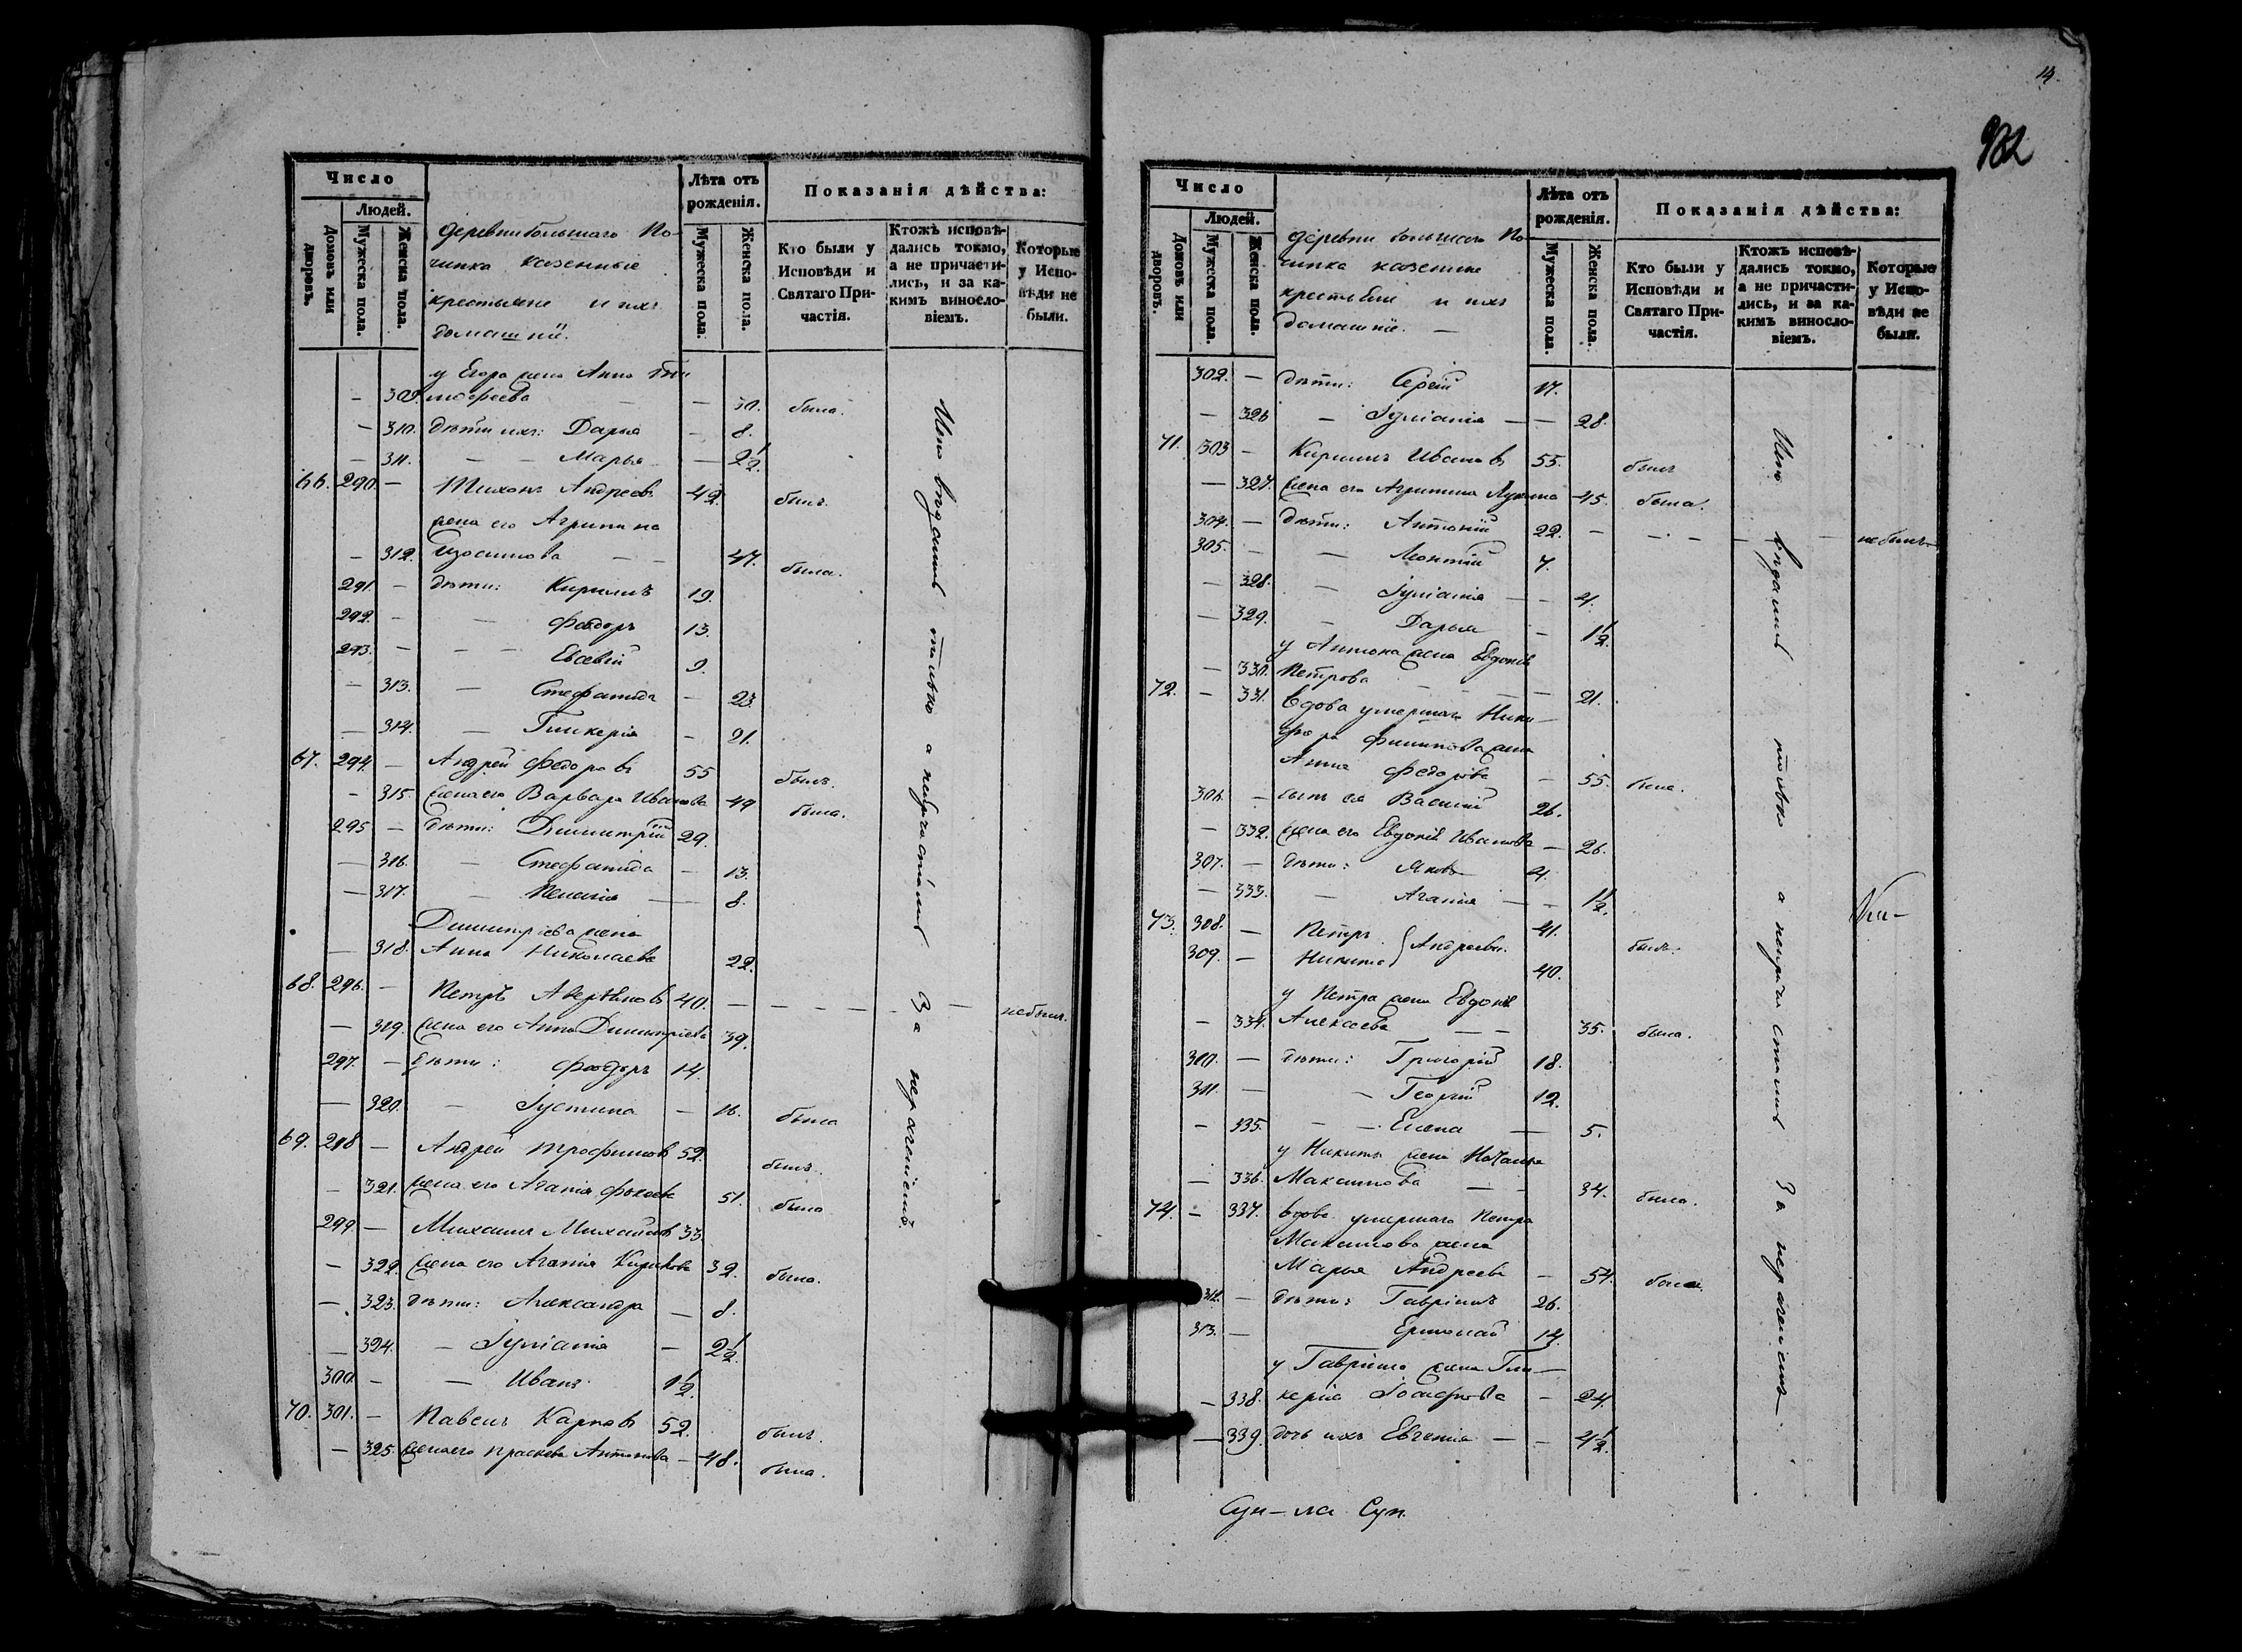 Число
Людей.
Домовъ или дворовъ.
Мужеска пола.
Женска пола.
деревни большаго По-
чинка казенные
крестьяне и ихъ
домашніе.
Лѣта отъ рожденія.
Мужеска пола.
Женска пола.
Показанія дѣйства:
Кто были у Исповѣди и Святаго При-частія.
Ктожъ исповѣ-дались токмо, а не причасти-лись, и за ка-кимъ винословіемъ.
Которые у Испо-вѣди не были.
у Егора жена Анна
— 309. — 30. была.
— 310. дѣти ихъ: Дарья — 8.
— 311. — — Марья — 2½
66. 290. — Тихонъ Андреевъ 42. былъ.
жена его Агрипина
— 312. Изосимова — 47. была.
291. — дѣти: Кирилъ 19.
292. — — Феодоръ 13.
293. — — Евсевій 9.
— 313. — Стефанида — 23.
— 314. — Гликерія — 21.
67. 294. — Андрей Федоровъ 55 былъ.
— 315. жена его Варвара Иванова 49 была.
295 — дѣти: Димитрій 29.
— 316. — Стефанида — 13.
— 317. — Пелагія — 8.
Димитріева жена
— 318. Анна Николаева 22.
68. 296. — Петръ 40. — — — — небылъ.
— 319. жена его Анна Димитріева 39.
297. — дѣти: Феодоръ 14.
— 320. — Іустина — 16. была
69. 298 — Андрей Трофимовъ 52. былъ.
— 321. жена его Агафія Фокеева 51. была
299. — Михаилъ Михайловъ 33.
— 322. жена его Агафія 32. была.
— 323. дѣти: Александра — 8.
— 324. — Іуліанія — 2½.
300. — — Иванъ 1½.
70. 301. — Павелъ Карповъ 52. былъ.
— 325. жена его Праскева Антонова — 48. была.
Исповѣдались только а непричастились За нераченіемъ.
14.
982
Число
Людей.
Домовъ или дворовъ.
Мужеска пола.
Женска пола.
деревни большаго По-
чинка казенные
крестьяне и ихъ
домашніе. —
Лѣта отъ рожденія.
Мужеска пола.
Женска пола.
Показанія дѣйства:
Кто были у Исповѣди и Святаго При-частія.
Ктожъ исповѣ-дались токмо, а не причасти-лись, и за ка-кимъ винословіемъ.
Которые у Испо-вѣди не были.
302. — дѣти: Сергій 17.
— 326 — Іуліанія — — 28.
71. 303 — Кирилъ Ивановъ 55. былъ
— 327. жена его Агрипина 45. была.
304. — дѣти: Антоній 22. — — — — небылъ
305. — — Леонтій 7.
— 328. — Іуліанія — — 4.
— 329. — Дарья — 1½.
у Антона жена Евдокія
— 330. Петрова — — — 21.
72. — 331. Вдова умершаго Ники-
фора Филипова жена
Анна Федорова — 55. была.
306. — сынъ ея Василій 26.
— 332. жена его Евдокія Иванова — 26.
307. — дѣти: Яковъ 4.
— 333. — Агафія — — 1½.
73. 308. — Петръ } Андреевы. 41. былъ.
309. — Никита 40.
у Петра жена Евдокія
— 334. Алексеева — — 35. была.
310. — дѣти: Григорій 18.
311. — — Георгій 12.
— 335. — — Елена — 5.
у Никиты жена Наталья
— 336. Максимова — — 34. была.
74. — 337. вдова умершаго Петра
Максимова жена
Марья Андреева — 54. была.
312. — дѣти: Гавріилъ 26.
313. — Ермолай 14.
у Гавріила жена Гли-
— 338. керія — 24.
— 339. дочь ихъ Евгенія — — 4½.
Исповѣдались только а непричастились За нераченіемъ.